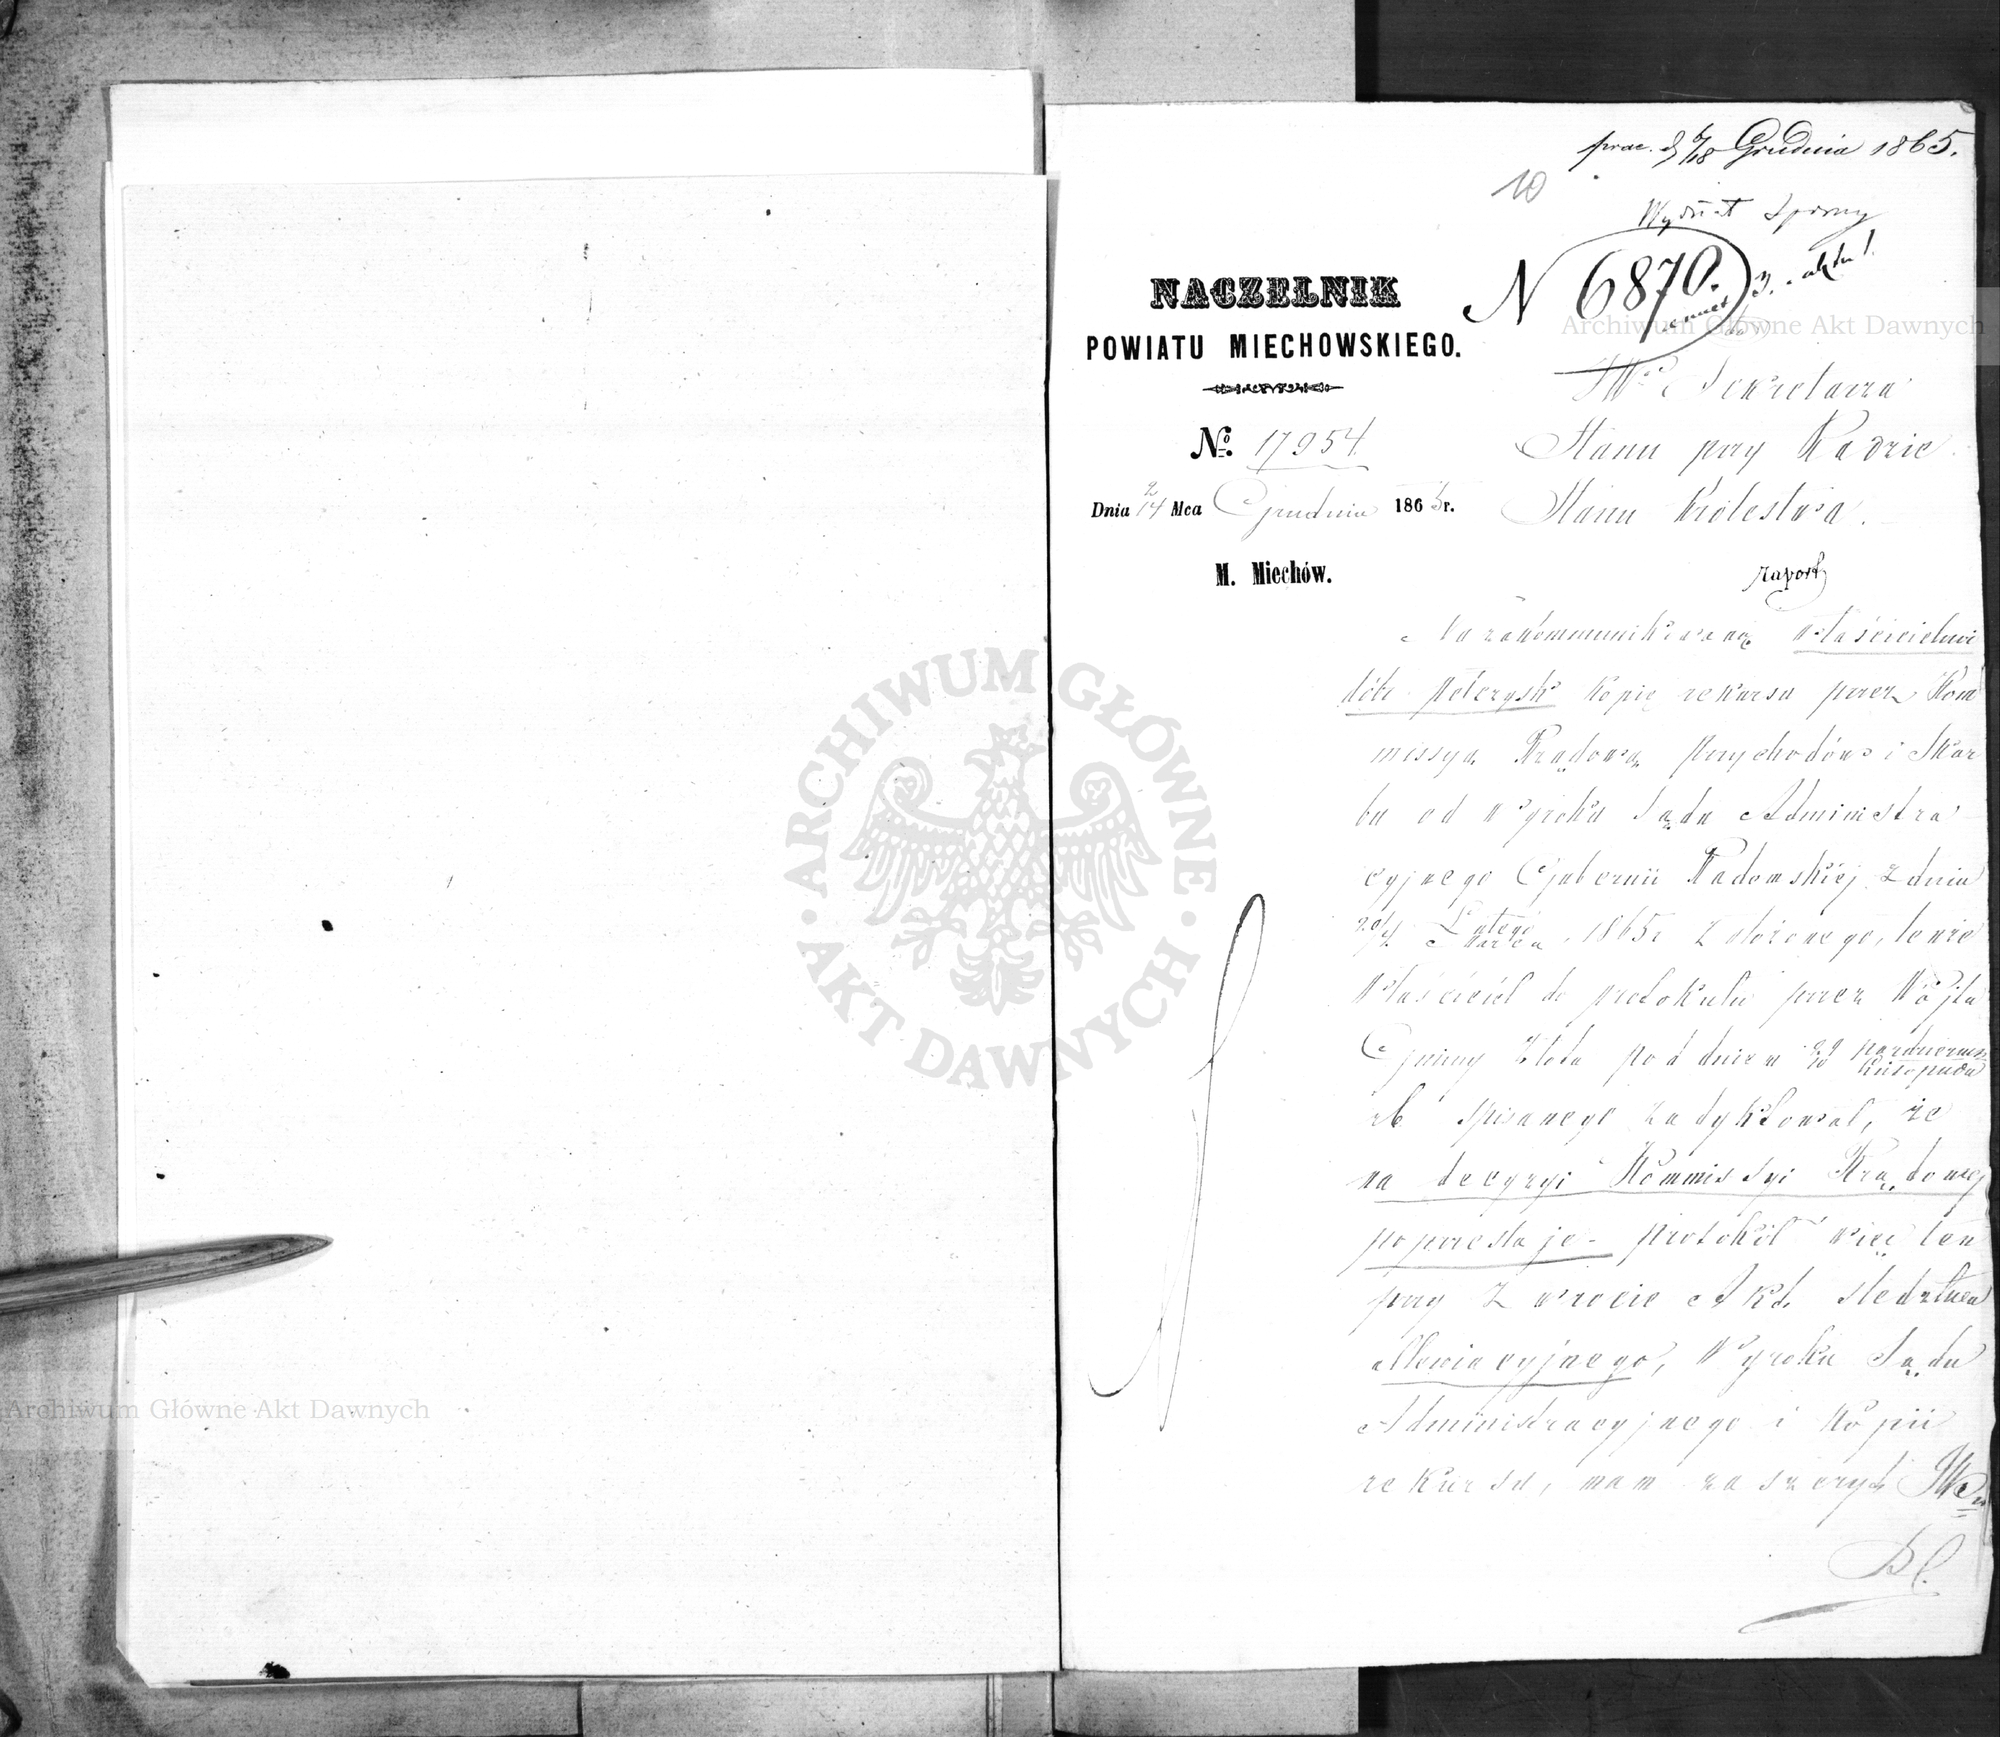 prae. d 6/18 Grudnia 1865.
10
Wydział Sporny
N 6870.
3. akta 1.
NACZELNIK
POWIATU MIECHOWSKIEGO.
JWo Sekretarza
No. 17954.
Stanu przy Radzie
Dnia 2/14 Mca Grudnia 1865 r.
Stanu Królestwa.
M. Miechów.
raport
Na zakommunikowaną właścicielowi
dóbr Pełczysk kopię rekursu przez Kom
missyą Rządową Przychodów i Skar
bu od wyroku Sądu Administra
cyjnego Gubernii Radomskiej z dnia
20/4 Lutego/Marca 1865 r. założonego, tenże
Właściciel do protokułu przez Wójta
Gminy Złota pod dniem 29/10 Październ./Listopada
rb spisanego zadyktował, że
na decyzyi Kommissyi Rządowej
poprzestaje - protokół więc ten
przy zwrocie Akt. śledztwa
allewiacyjnego, Wyroku Sądu
Administracyjnego i kopii
rekursu, mam zaszczyt JW
Archiwum Główne Akt Dawnych
ARCHIWUM GŁÓWNE AKT DAWNYCH
Archiwum Główne Akt Dawnych